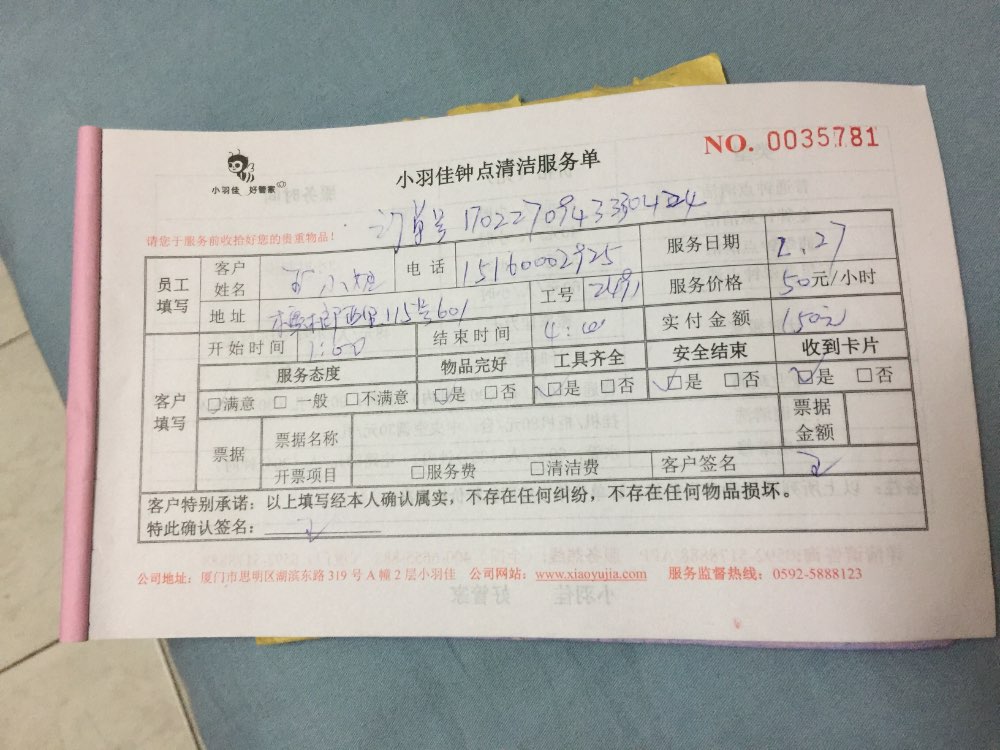 NO. 0035781
小羽佳 好管家
小羽佳钟点清洁服务单
订单号 17022709433304224
请您于服务前收拾好您的贵重物品!
员工填写 客户姓名 电话 15160002925 服务日期 2.27
地址 115号601 工号 2491 服务价格 50元/小时
开始时间 1:00 结束时间 4:00 实付金额 150元
客户填写 服务态度 物品完好 工具齐全 安全结束 收到卡片
☑满意 □一般 □不满意 ☑是 □否 ☑是 □否 ☑是 □否 ☑是 □否
票据 票据名称 票据金额
开票项目 □服务费 □清洁费 客户签名
客户特别承诺:以上填写经本人确认属实,不存在任何纠纷,不存在任何物品损坏。
特此确认签名:
公司地址:厦门市思明区湖滨东路 319 号 A 幢 2 层小羽佳 公司网站:www.xiaoyujia.com 服务监督热线:0592-5888123